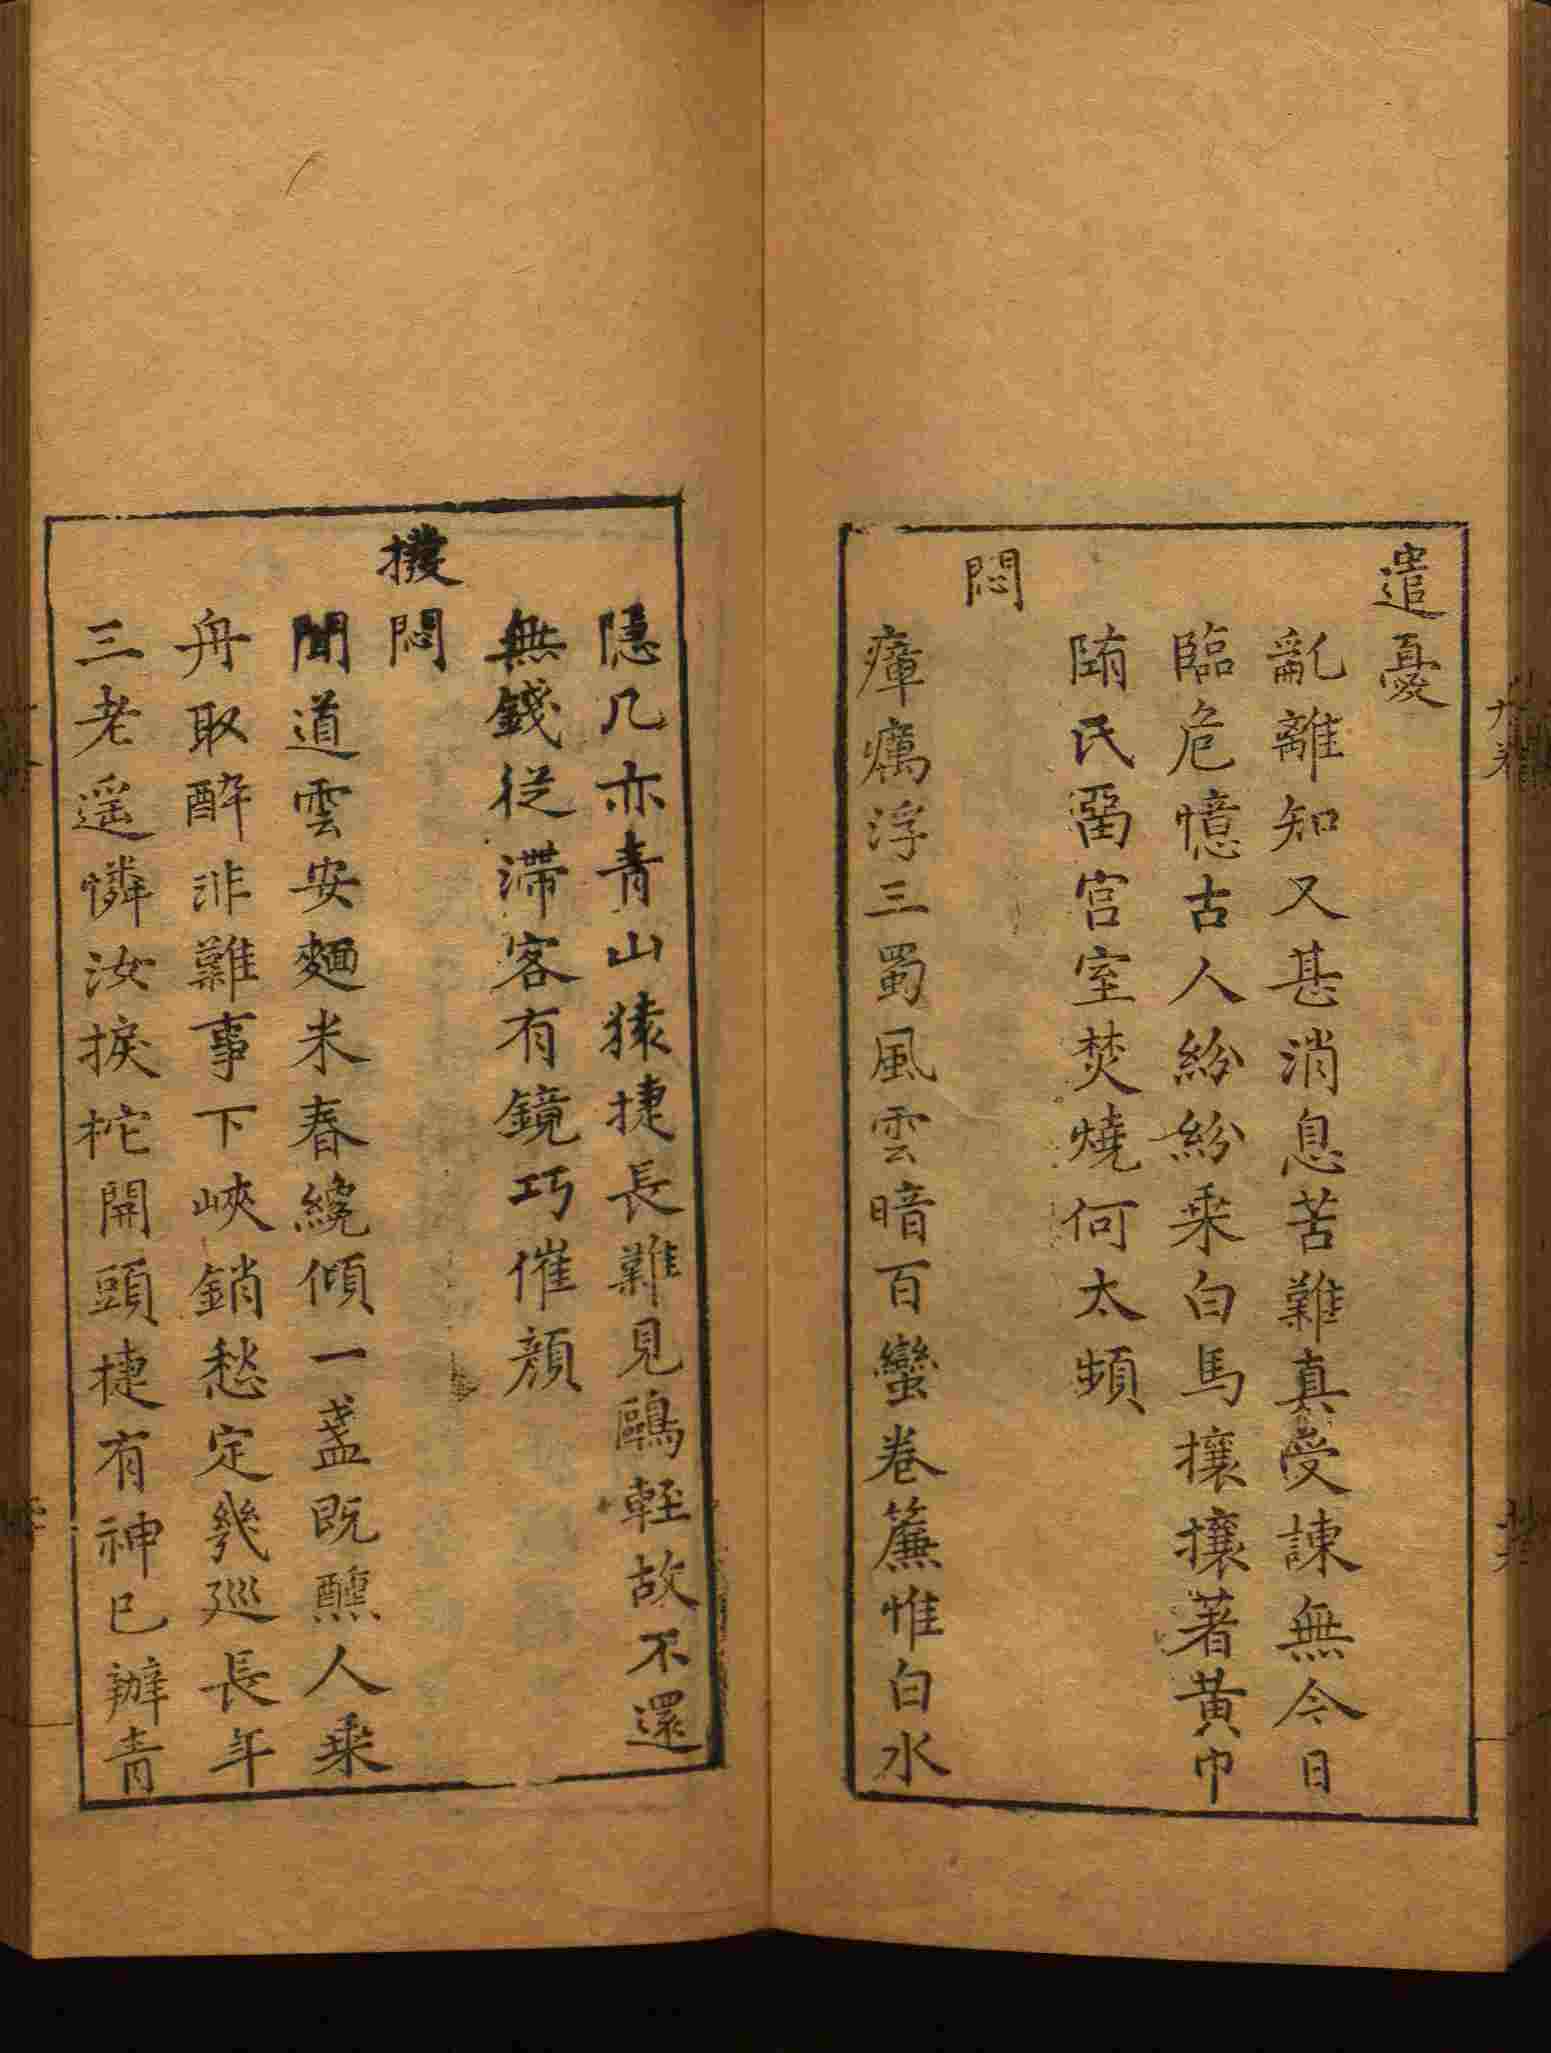 遣憂
亂離知又甚消息苦難真受諫無今日
臨危憶古人紛紛乘白馬攘攘著黃巾
隋氏留宮室焚燒何太頻
悶
瘴癘浮三蜀風雲暗百蠻卷簾惟白水
隱几亦青山猿捷長難見鷗輕故不還
無錢從滯客有鏡巧催顏
撥悶
聞道雲安麯米春纔傾一盞既醺人乘
舟取醉非難事下峽銷愁定幾巡長年
三老遥憐汝捩柁開頭捷有神已辦青